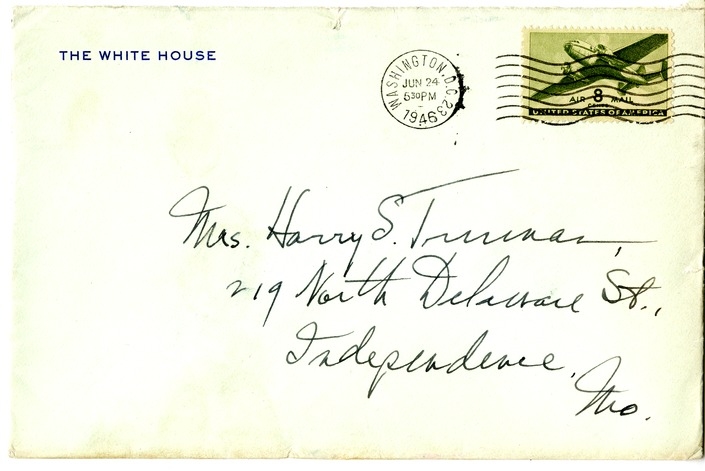 THE WHITE HOUSE
WASHINGTON, D.C. 23
JUN 24
5 30 PM
1946
8
AIR MAIL
UNITED STATES OF AMERICA
Mrs. Harry S. Truman,
219 North Delaware St.,
Independence,
Mo.